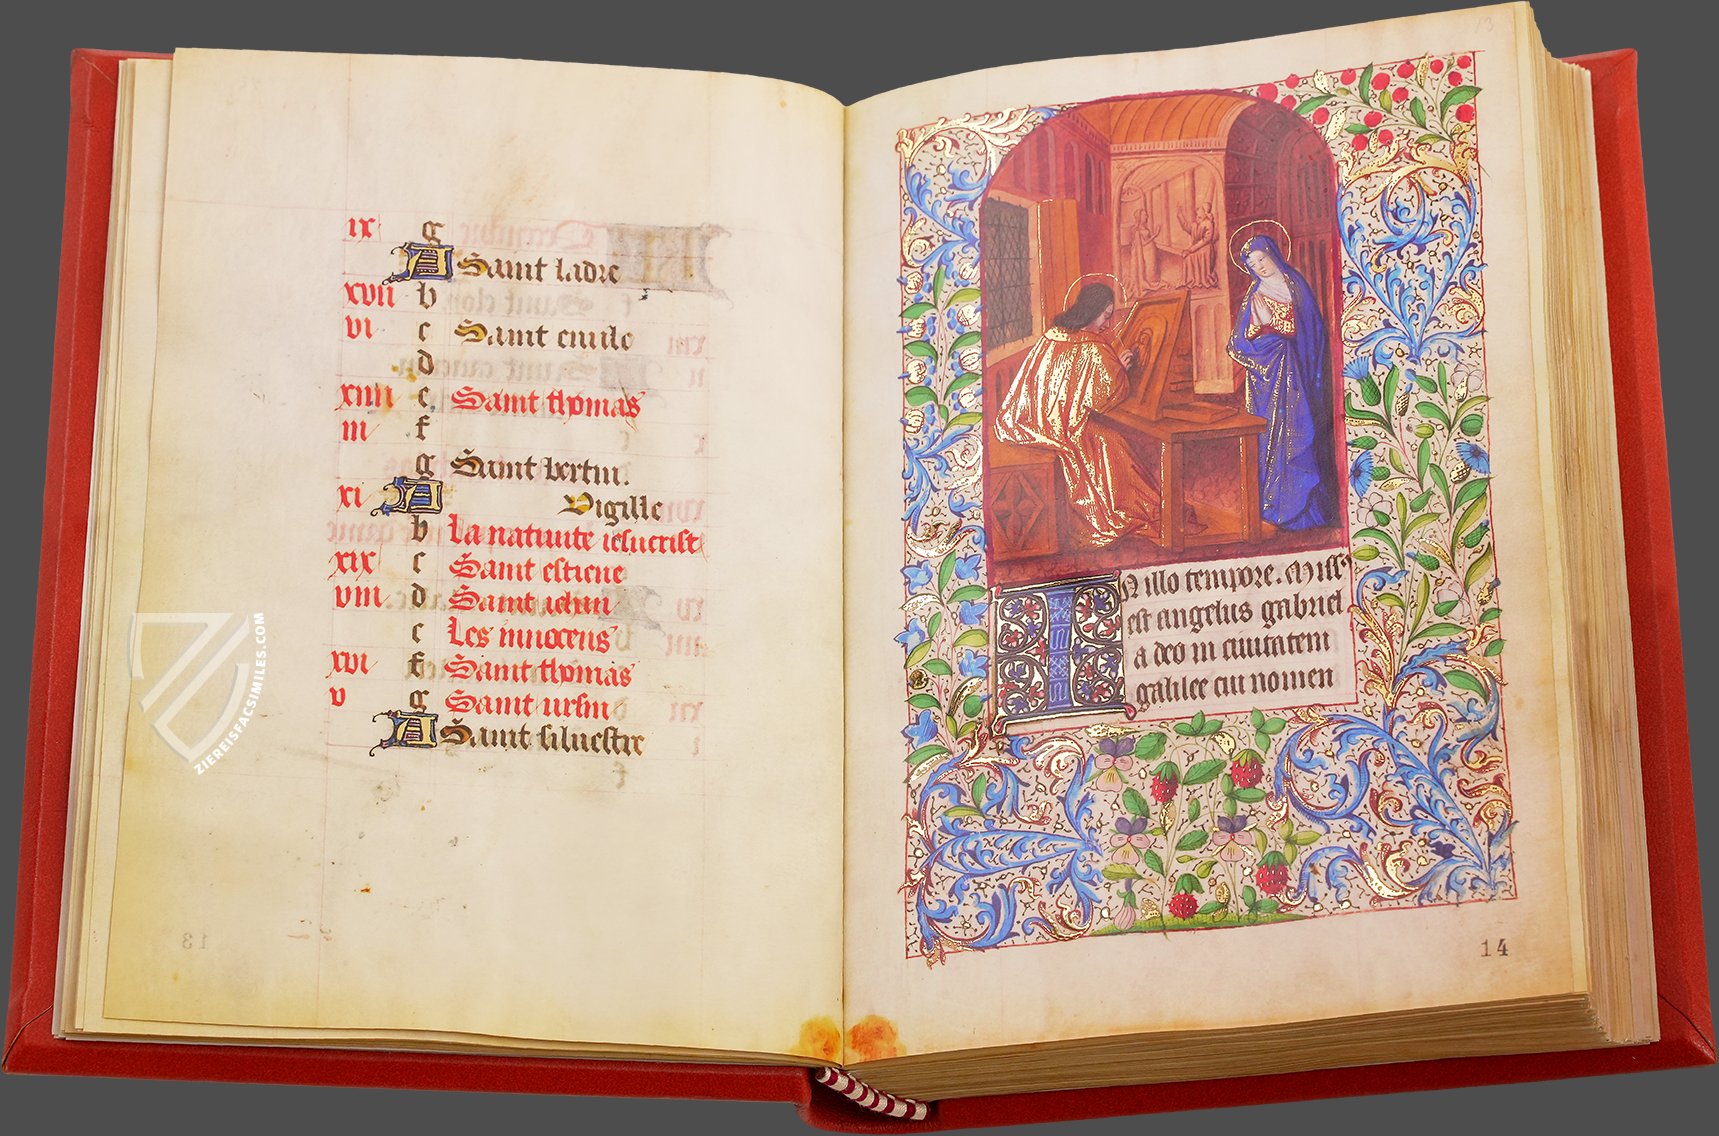 ix g
A Saint ladre
xvii b
vi c Saint emile
d
xiiii e Saint thomas
iii f
g Saint bertin.
xi A Vigille
b La natiuite iesucrist
xix c Saint estiene
viii d Saint iehan
e Les innocens
xvi f Saint thomas
v g Saint ursin
A Saint siluestre
13
ZIEREISFACSIMILES.COM
13
IN illo tempore. Miss
est angelus gabriel
a deo in ciuitatem
galilee cui nomen
14